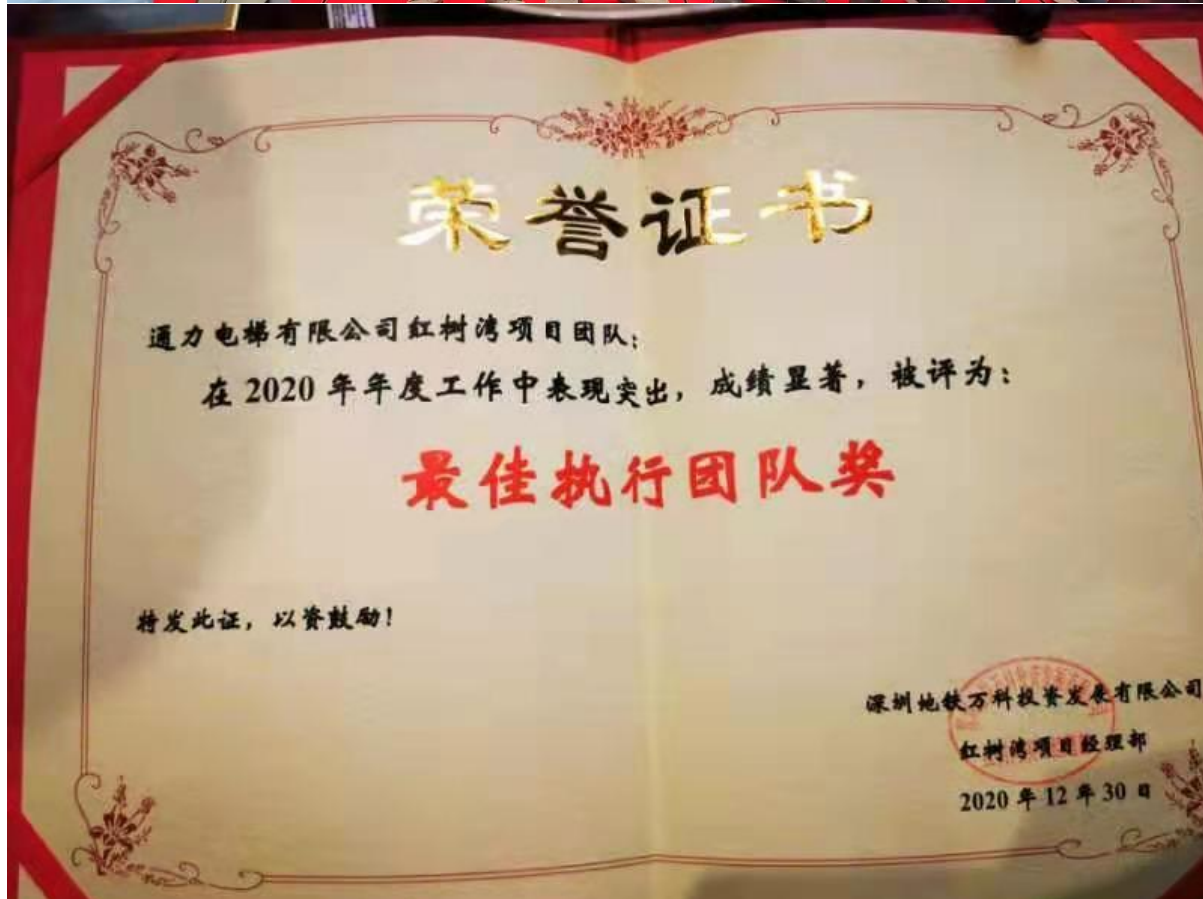 荣誉证书
通力电梯有限公司红树湾项目团队:
在 2020 年年度工作中表现突出，成绩显著，被评为：
最佳执行团队奖
特发此证，以资鼓励！
深圳地铁万科投资发展有限公司
红树湾项目经理部
2020 年 12 年 30 日